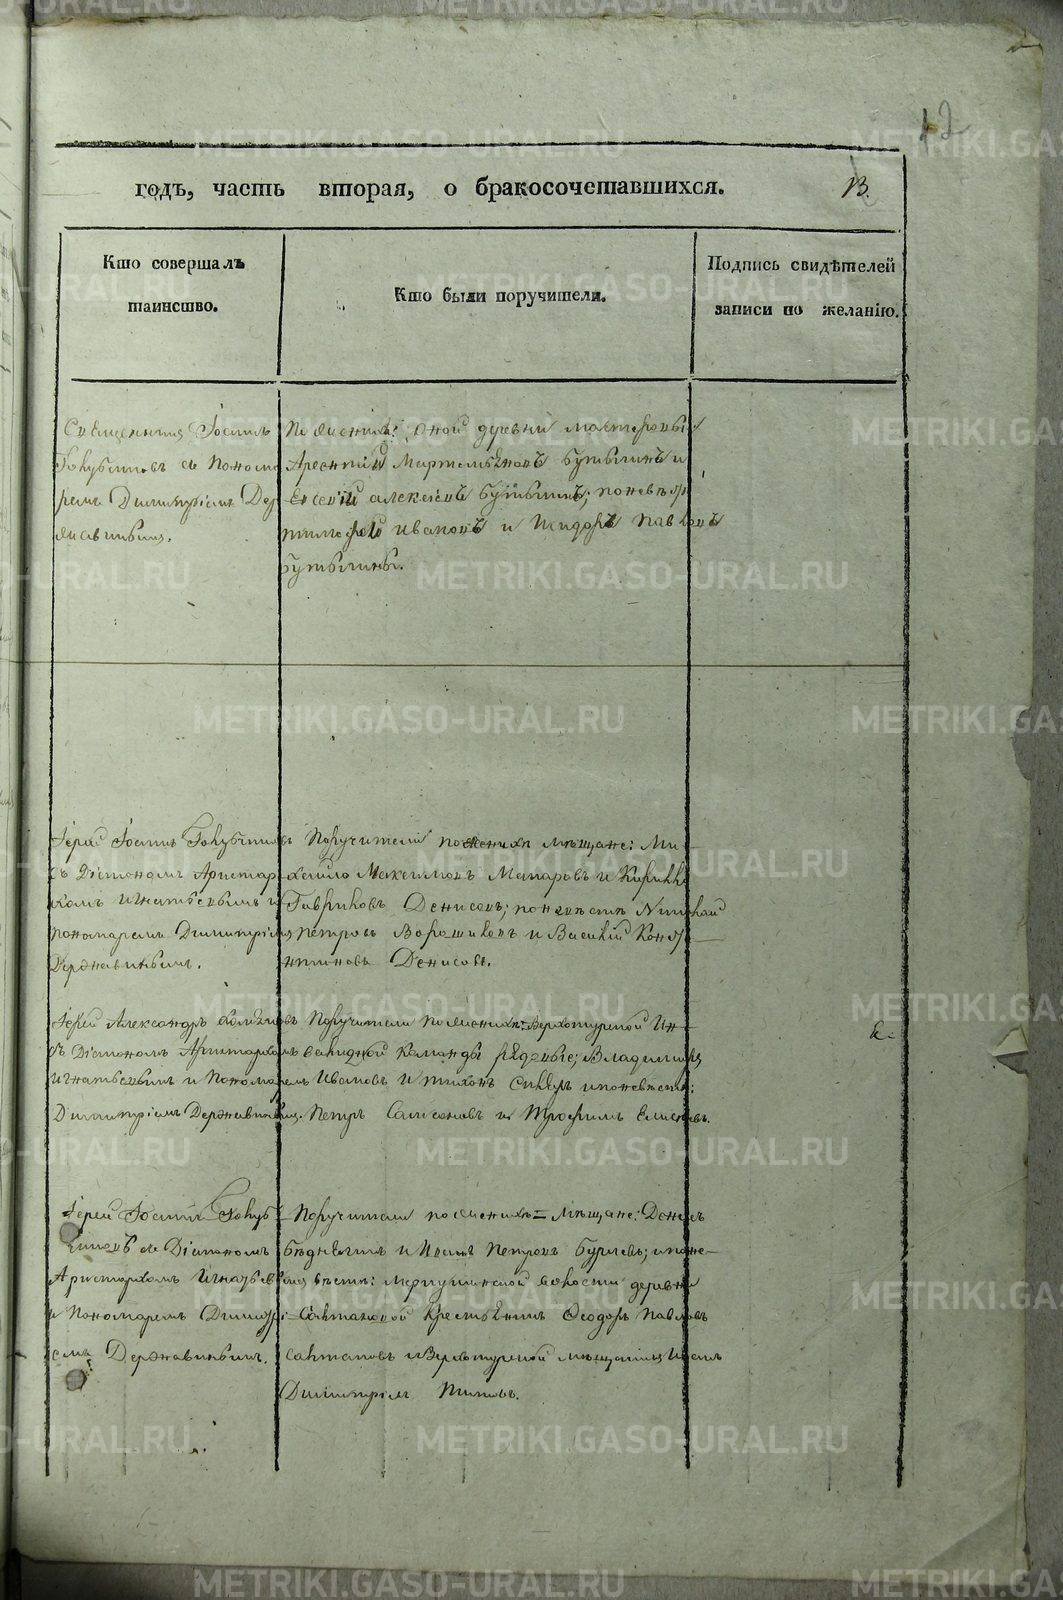 12
годъ, часть вторая, о бракосочетавшихся.
13.
Кто совершалъ
таинство.
Кто были поручители.
Подпись свидѣтелей
записи по желанію.
Священникъ Іоаннъ
съ Понома
ремъ Димитріемъ Дер
жавинымъ.
По женихѣ: оной деревни
Арсентій Бутыгинъ и
Алексѣевъ Бутыгинъ; по невѣстѣ
Тимофей Ивановъ и Исидоръ Павловъ
Бутыгины.
Іерей Іоаннъ
съ Діакономъ Аристар
хомъ Игнатьевымъ и
пономаремъ Димитріемъ
Державинымъ.
Поручители по женихѣ мѣщане: Ми
хайло Максимовъ Макаровъ и
Гавриловъ Денисовъ; по невѣстѣ
Петровъ Ворошиловъ и Василій Конста
нтиновъ Денисовъ.
Іерей Александръ
съ Діакономъ Аристархомъ
Игнатьевымъ и Пономаремъ
Димитріемъ Державинымъ.
Поручители по женихѣ: Верхотурской Ин
валидной команды рядовые; Владимиръ
Ивановъ и Тихонъ и по невѣстѣ:
Петръ Самсоновъ и Трофимъ Елисѣевъ.
Іерей Іоаннъ
съ Діакономъ
Аристархомъ Игнатьев
и Пономаремъ Димитрі
емъ Державинымъ.
Поручители по женихѣ = мѣщане:
и Иванъ Петровъ Бурлевъ; и по не
вѣстѣ: Меркушинской волости деревни
Салтановой Крестьянинъ Ѳеодоръ Павловъ
Салтановъ и Верхотурской мѣщанинъ Иванъ
Димитріевъ Титовъ.
METRIKI.GASO-URAL.RU